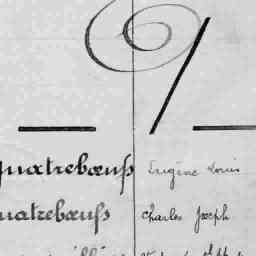 Quatrebœufs Eugène Louis
Quatrebœufs Charles Joseph